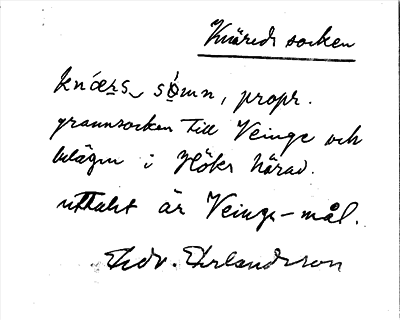 Knäreds socken
knæ̀rs sómn, propr.
grannsocken till Veinge och
belägen i Höks härad.
uttalet är Veinge-mål.
Edv. Erlandsson